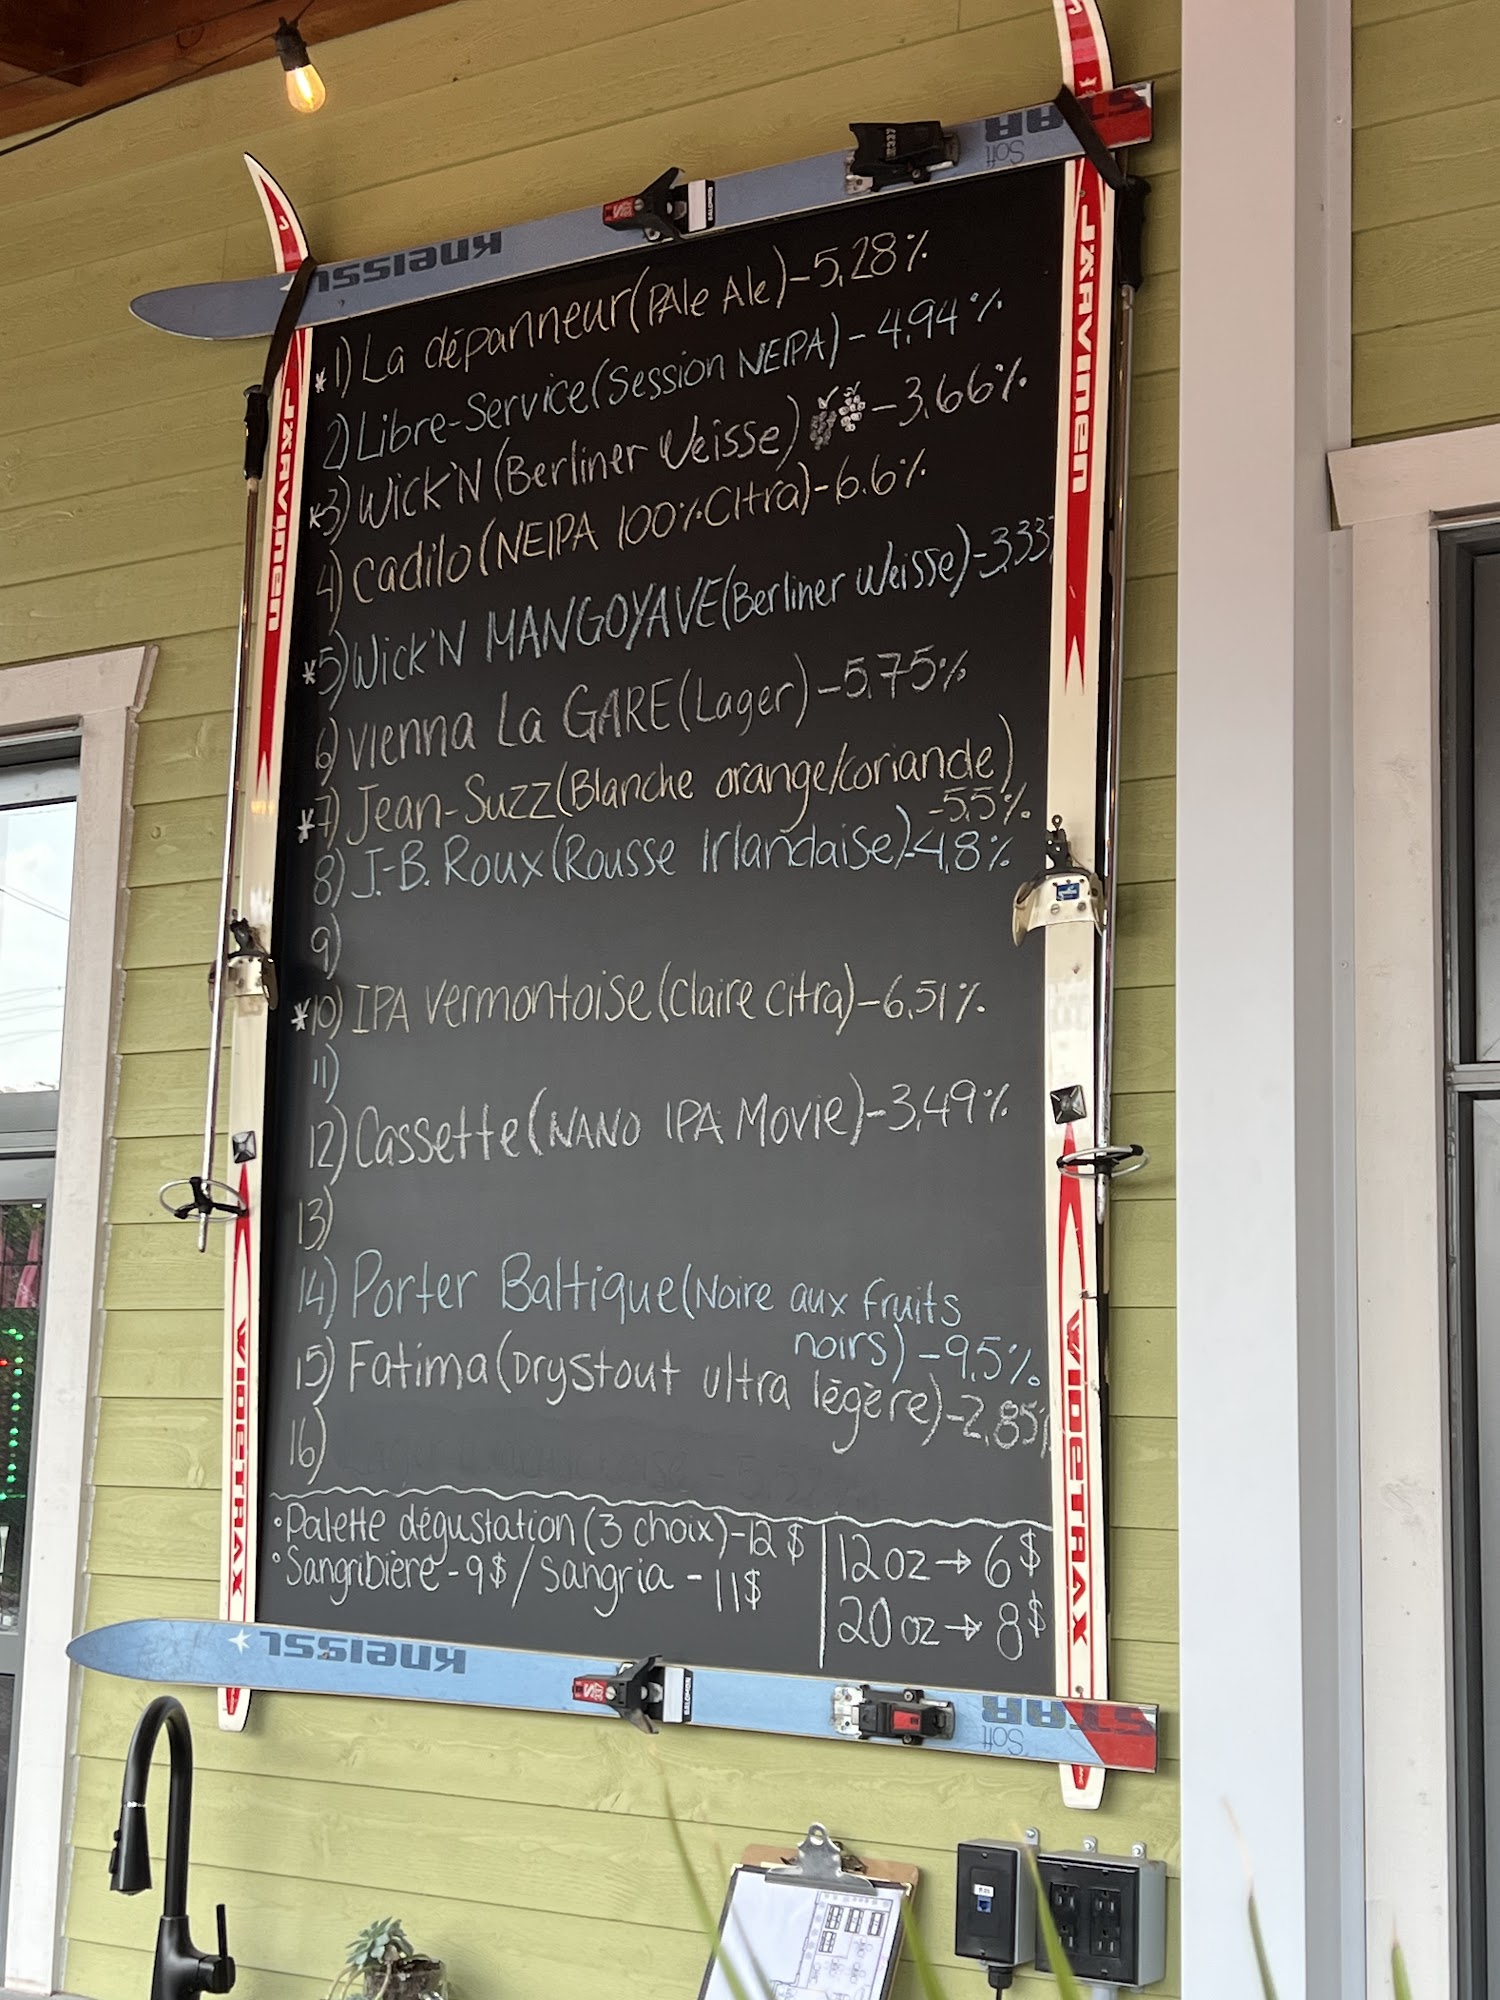 KNEISSL
STAR
Soft
JÄRVINEN
JÄRVINEN
*1) La dépanneur (PAle Ale) - 5,28%
2) Libre-Service (Session NEIPA) - 4,94%
*3) Wick'N (Berliner Weisse) - 3,66%
4) Cadilo (NEIPA 100% Citra) - 6.6%
*5) Wick'N MANGOYAVE (Berliner Weisse) - 3,33%
6) Vienna La GARE (Lager) - 5,75%
*7) Jean-Suzz (Blanche orange/coriande)
-5.5%
8) J.-B. Roux (Rousse Irlandaise) - 4,8%
9)
*10) IPA Vermontoise (Claire Citra) - 6,51%
11)
12) Cassette (NANO IPA Movie) - 3,49%
13)
14) Porter Baltique (Noire aux fruits
noirs) - 9,5%
15) Fatima (Drystout ultra légère) - 2,85%
16)
• Palette dégustation (3 choix) - 12$
• Sangribière - 9$ / Sangria - 11$
12 oz → 6$
20 oz → 8$
WIDETRAX
WIDETRAX
KNEISSL
STAR
Soft